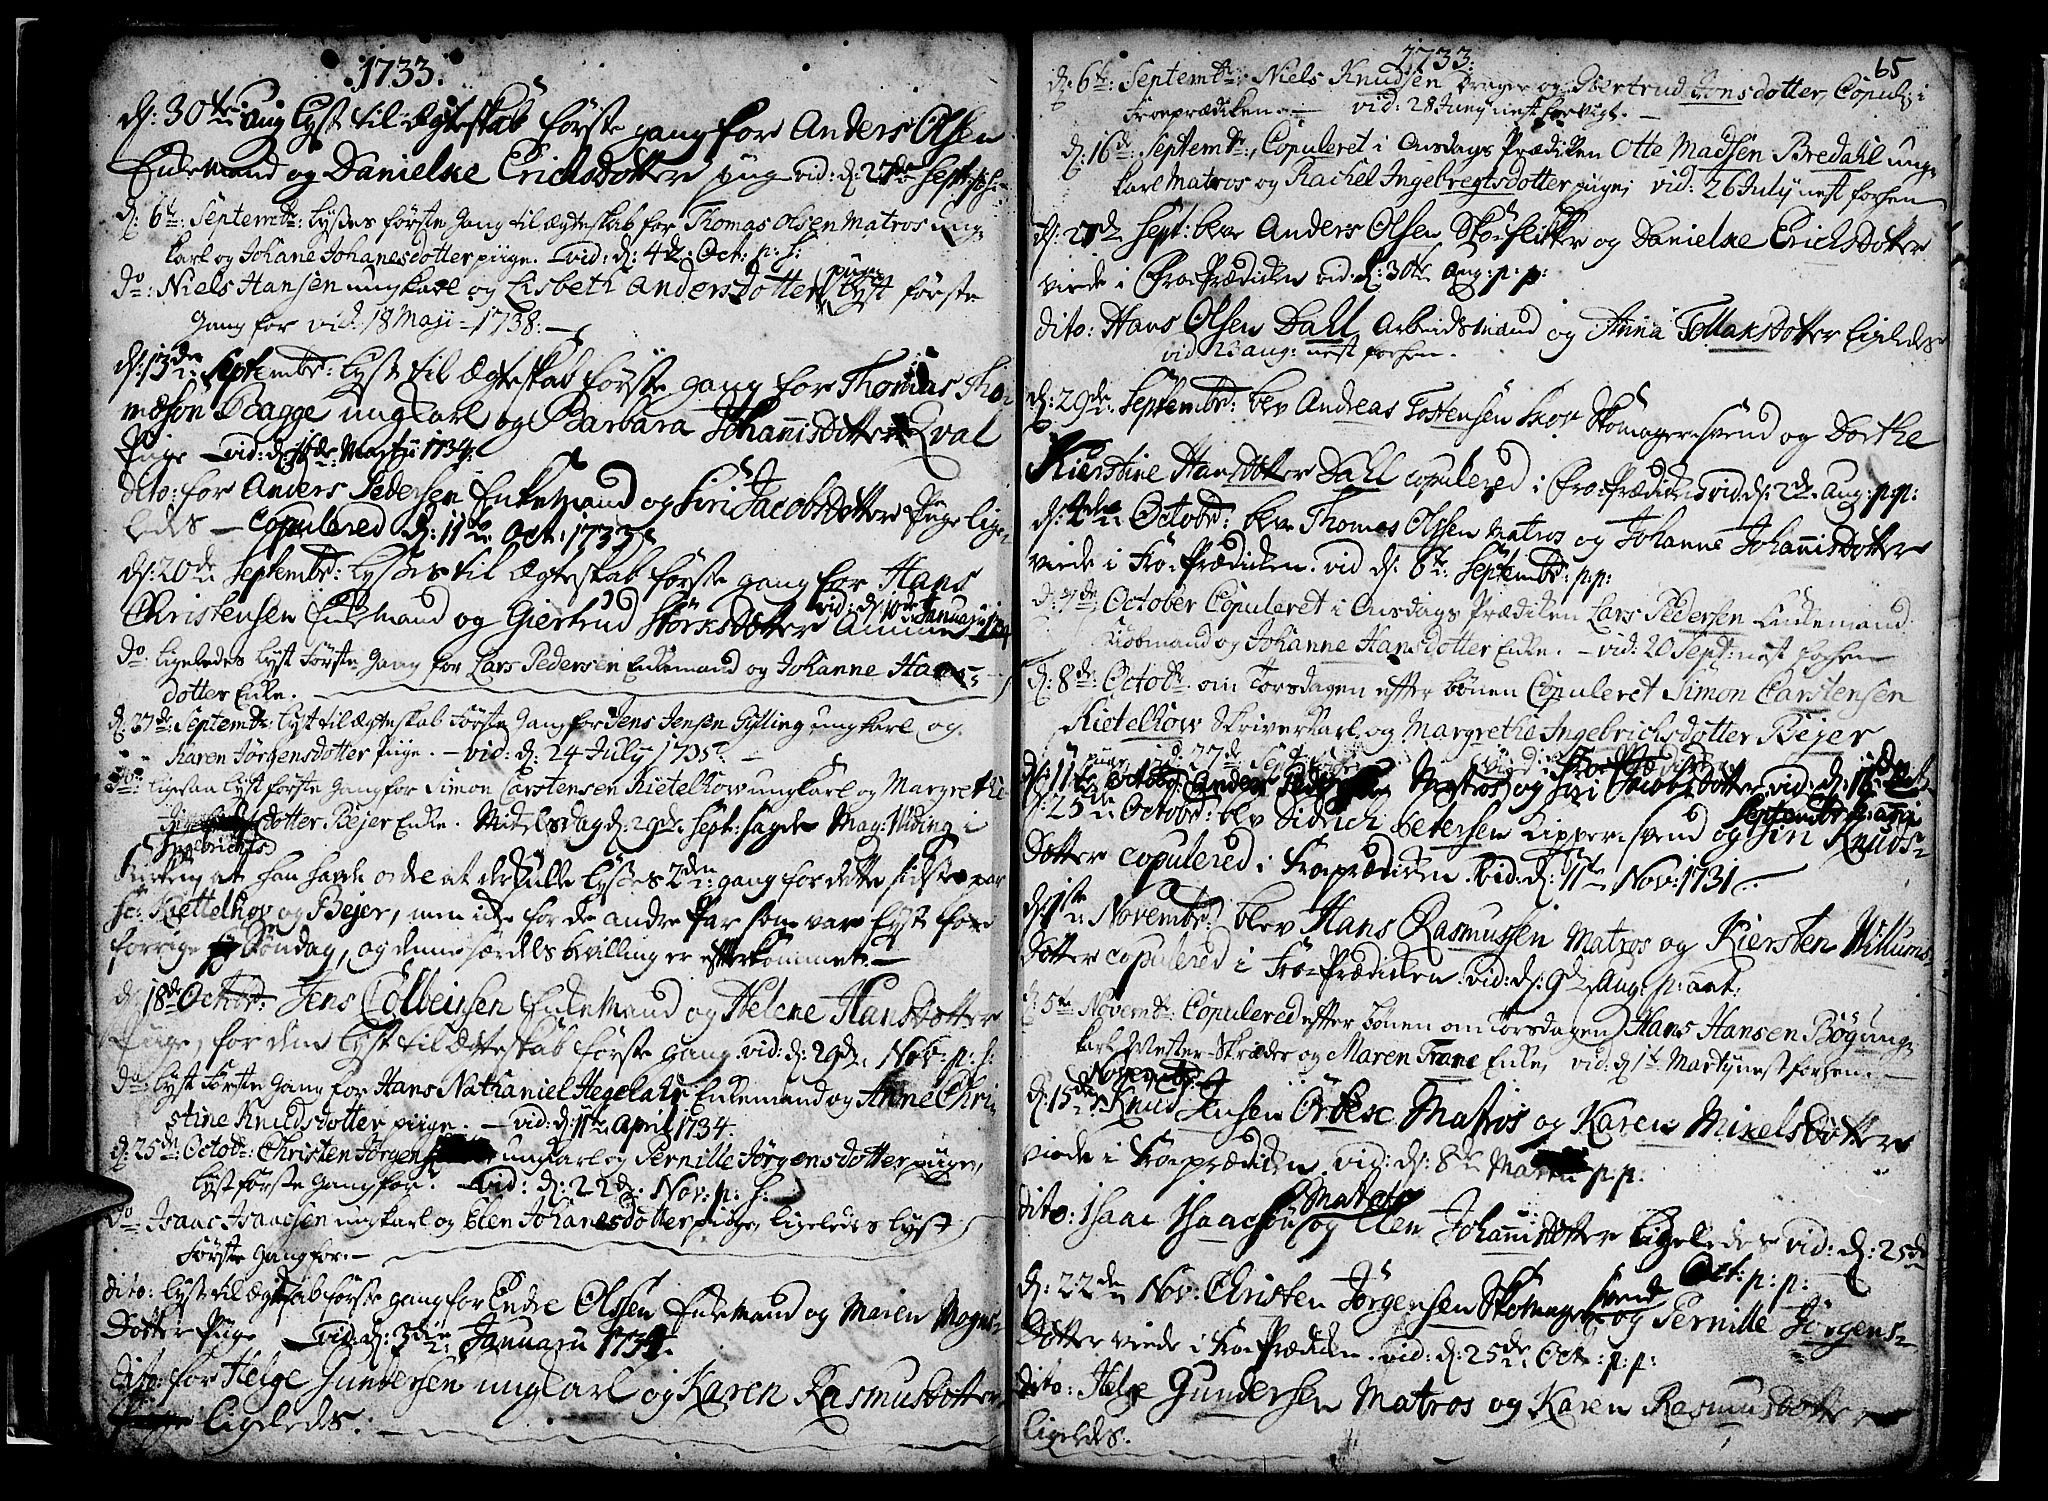 1733.
d: 30te Aug lyst til Ægteskab første gang for Anders Olsen
Enkemand og Danielke Erichsdotter pug vid: d: 27de Sept: p: h:
d: 6te: Septembr: lyses første Gang til ægteskab for Thomas Olsen Matros ung
karl og Johane Johanesdotter piige. vid: d: 4de Oct: p: h:
do: Niels Hansen ungkarl og Lisbeth Andersdotter piige lyst første
Gang for vid: 18 Maij 1738.
d: 13de Septembr: lyst til Ægteskab første gang for Thomas Tho
meson Bagge ungkarl og Barbara Johannisdotter Qval
Piige vid: d: 16de Martii 1734.
dito: for Anders Pedersen Enkemand og Siri Jacobsdotter Piige lige
ledes copulered d: 11te Oct: 1733
d: 20de Septembr: lyses til Ægteskab første gang for Hans
Christensen Enkemand og Giertrud Størksdotter vid: d: Januarij 1734
do: ligeledes lyst første Gang for Lars Pedersen Enkemand og Johanne Hans
dotter Enke.
d: 27de: Septembr: lyst til ægteskab første Gang for Jens Jensen Gylling ungkarl og
Karen Jørgensdotter piige. vid: d: 24 July 1735.
do ligesaa lyst første Gang for Simon Carstensen Kietelhow ungkarl og Margrethe
Ingebrichtsdotter Bejer Enke. Mikelsdag d: 29de Sept: sagde Mag: Viding i
Kirken at han hafde ordre at der skulle lyses 2den gang for dette sidste par
sc: Kettelhov og Bejer, men icke for de andre par som var lyst for
forrige Søndag, og denne særdeles bevilling er efterkommet.
d: 18de Octobr: Jens Colbeinsen Enkemand og Helene Hansdotter
Piige, for dem lyst til Ægteskab første gang. vid: d: 29de Nov: p: h:
do: lyst første Gang for Hans Nathaniel Hegelahr Enkemand og Anne Chri
stine Knudsdotter piige. vid: d: 11te April 1734.
d: 25de Octobr: Christen Jørgensen ungkarl og Pernille Jørgensdotter piige,
lyst første Gang for. vid: d: 22de Nov: p: h:
do Isaac Isaacsen ungkarl og Elen Johanesdotter piige ligeledes lyst
første Gang for.
dito: lyst til Ægteskab første gang for Endre Olssen Enkemand og Maren Mogns
dotter Piige vid: d: 3die Januarii 1734.
dito: for Helge Gundersen ungkarl og Karen Rasmusdotter
ligeledes.
1733.
65
d: 6te: Septembr: Niels Knudsen Drager og Giertrud Jonsdotter, Copul: i
Froeprædiken. vid: 28 Junij nest forvigt.
d: 16de: Septembr: Copuleret i Onsdags Prædiken Otte Madsen Bredahl ung
karl Matros og Rachel Ingebregtsdotter piige, vid: 26 July nest forhen
d: 27de Sept: blev Anders Olsen Skoflikker og Danielke Erichsdotter
viede i Froe Prædiken vid: d: 30te Aug: p: p:
dito: Hans Olsen Dahl Arbeidsmand og Anna Tollaksdotter ligeledes
vid 23 aug: nest forhen.
d: 29de Septembr: blev Andreas Tostensen Skomager-svend og Dorthe
Kierstine Hansdotter Dahl copulered i Froe Prædiken vid: d: 2de Aug: p: p:
d: 4de Octobr: blev Thomas Olssen Matros og Johanne Johannisdotter
viede i Fro-Prædiken. vid d: 6te Septembr: p: p:
d: 7de October Copuleret i Onsdags Prædiken Lars Pedersen Enkemand
Kiøbmand og Johanne Hansdotter Enke. vid: 20 Sept: nest forhen
d: 8de: Octobr om Torsdagen efter bønen Copuleret Simon Carstensen
Kietelhow Skriverkarl, og Margrethe Ingebrichsdotter Bejer
vid: 27de Sept
d: 11te Octobr Anders Pedersen Matros og Siri Jacobsdotter vid: d: 13de
Septembr
d: 25de Octobr: blev Didrich Petersen Kipper-svend og Siri Knuds
dotter copulered i Froeprædiken. vid: d: 11te Nov: 1731.
d: 1ste Novembr: blev Hans Rasmussen Matros og Kiersten Willums
dotter copulered i Froe-Prædiken. vid: d: 9de Aug: p: ant:
d: 5te Novembr Copulered efter bønen om Torsdagen Hans Hansen Bøg ung
karl Mester Skræder og Maren Trane Enke, vid: d: 1te Martij nest forhen.
d: 15de Novembr Knud Jensen Ørbek Matros og Karen Mikelsdotter
viede i Froeprædiken. vid: d: 8de Martii p: p.
dito: Isaac Isaacsøn Matros og Elen Johannisdotter ligeledes vid: d: 25de
Oct: p: p:
d: 22de Nov: Christen Jørgensen Skomagersvend og Pernille Jørgens
dotter viede i Froe Prædiken. vid: d: 25de Oct: p: p:
dito: Helge Gundersen Matros og Karen Rasmusdotter
ligeledes.